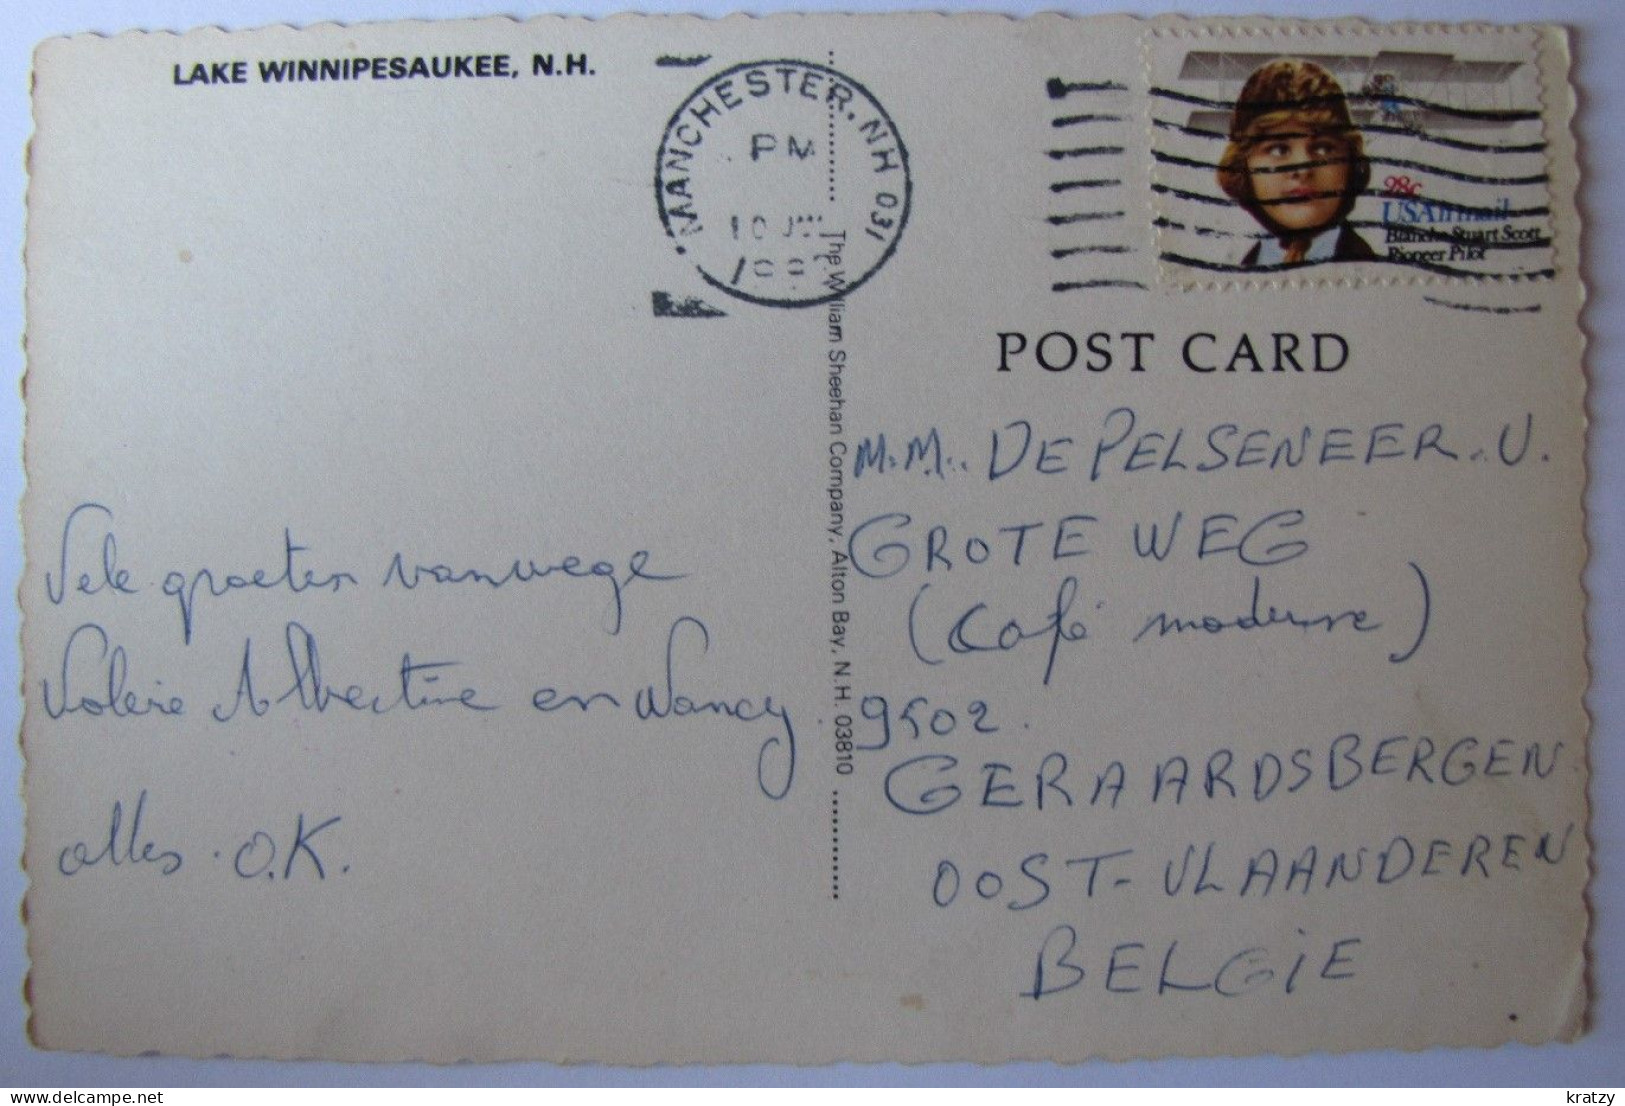 LAKE WINNIPESAUKEE, N.H.
MANCHESTER, NH 031
PM
10
28c
USAirmail
Blanche Stuart Scott
Pioneer Pilot
The William Sheehan Company, Alton Bay, N.H. 03810
POST CARD
Vele groeten vanwege
Valère Albertine en Nancy.
alles. O.K.
M.M. DE PELSENEER. U.
GROTE WEG
(Café moderne)
9502.
GERAARDSBERGEN
OOST-VLAANDEREN
BELGIE
kratzy